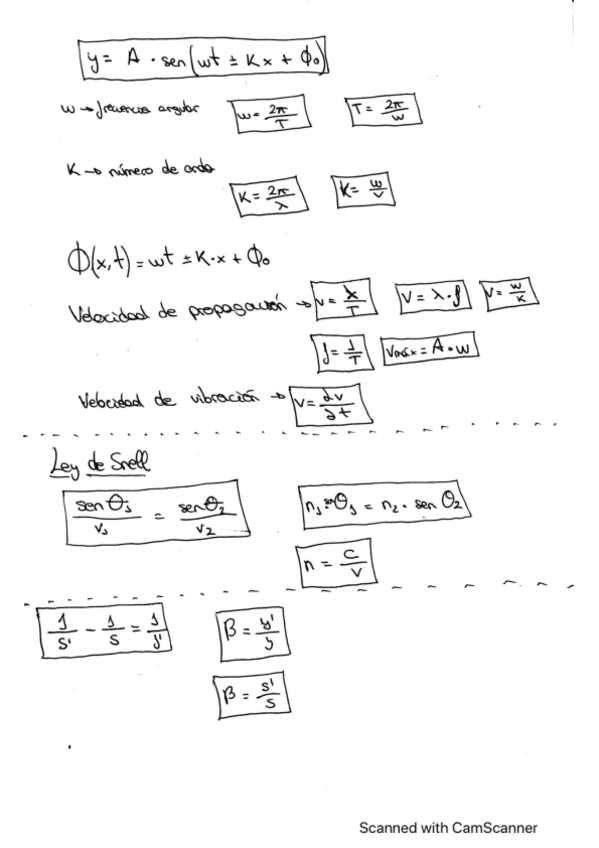 y = A · sen(wt ± Kx + ϕ₀)
w → frecuencia angular w = 2π/T T = 2π/w
K → número de onda
K = 2π/λ K = w/v
ϕ(x,t) = wt ± K·x + ϕ₀
Velocidad de propagación → v = λ/T V = λ·f V = w/K
f = 1/T Vmáx = A·w
Velocidad de vibración → v = ∂v/∂t
Ley de Snell
senθ₁/v₁ = senθ₂/v₂ n₁·senθ₁ = n₂·senθ₂
n = c/v
1/s' - 1/s = 1/f' β = y'/y
β = s'/s
Scanned with CamScanner